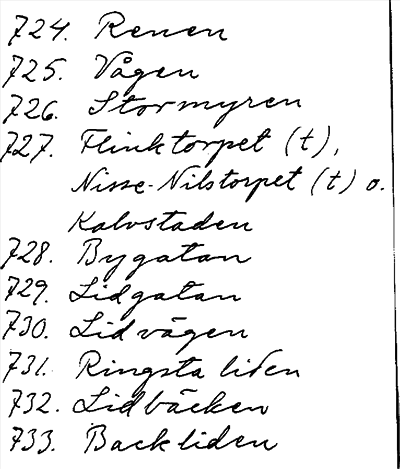 724. Renen
725. Vågen
726. Stormyren
727. Flinktorpet (t),
Nisse-Nilstorpet (t) o.
Kalvstaden
728. Bygatan
729. Lidgatan
730. Lidvägen
731. Ringsta liden
732. Lidbäcken
733. Backliden